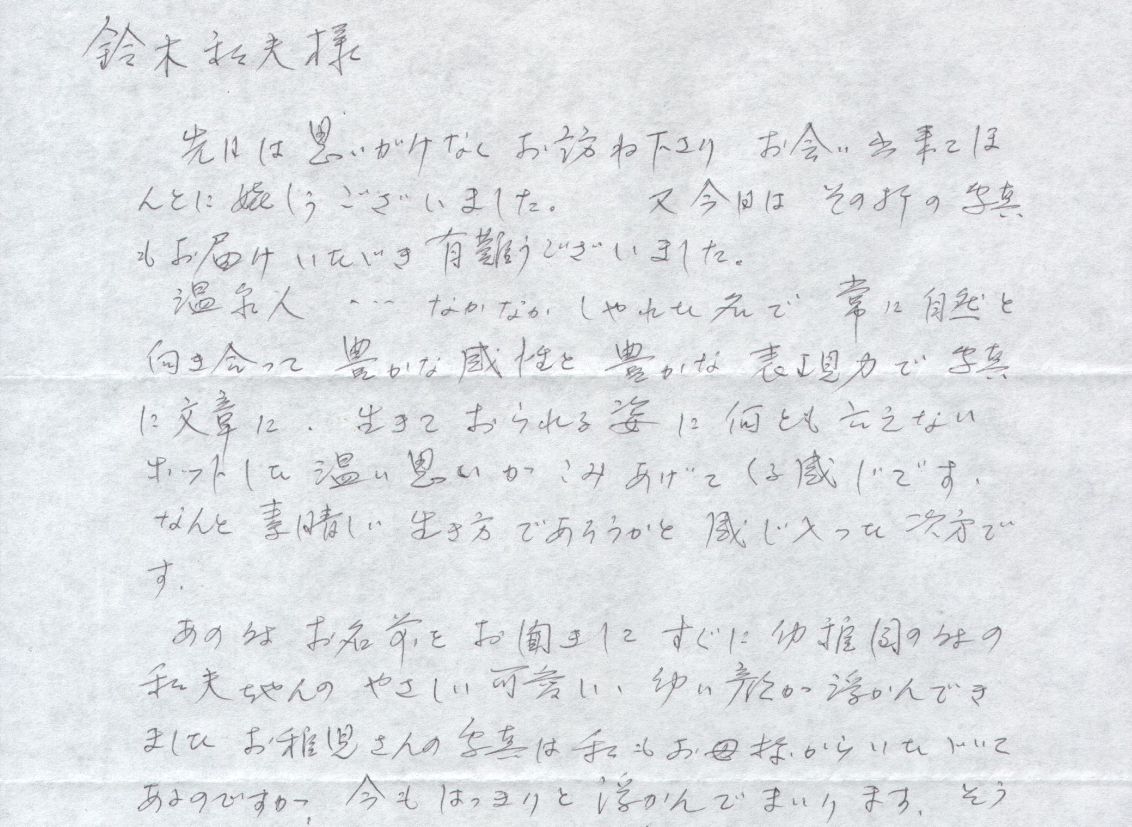 鈴木和夫様
先日は思いがけなくお訪ね下さり お会い出来てほ
んとに嬉しうございました。 又今日は その折の写真
もお届けいただき有難うございました。
温泉人 …… なかなかしゃれた名で 常に自然と
向き合って 豊かな感性と 豊かな表現力で 写真
に文章に、生きておられる姿に何とも言えない
ホットした温い思いがこみあげてくる感じです。
なんと素晴しい生き方であろうかと感じ入った次第で
す。
あの時お名前をお聞きしてすぐに幼稚園の時の
和夫ちゃんのやさしい可愛い、幼い顔が浮かんでき
ました お稚児さんの写真は私もお母様からいただいて
あるのですが、今もはっきりと浮かんでまいります。そう